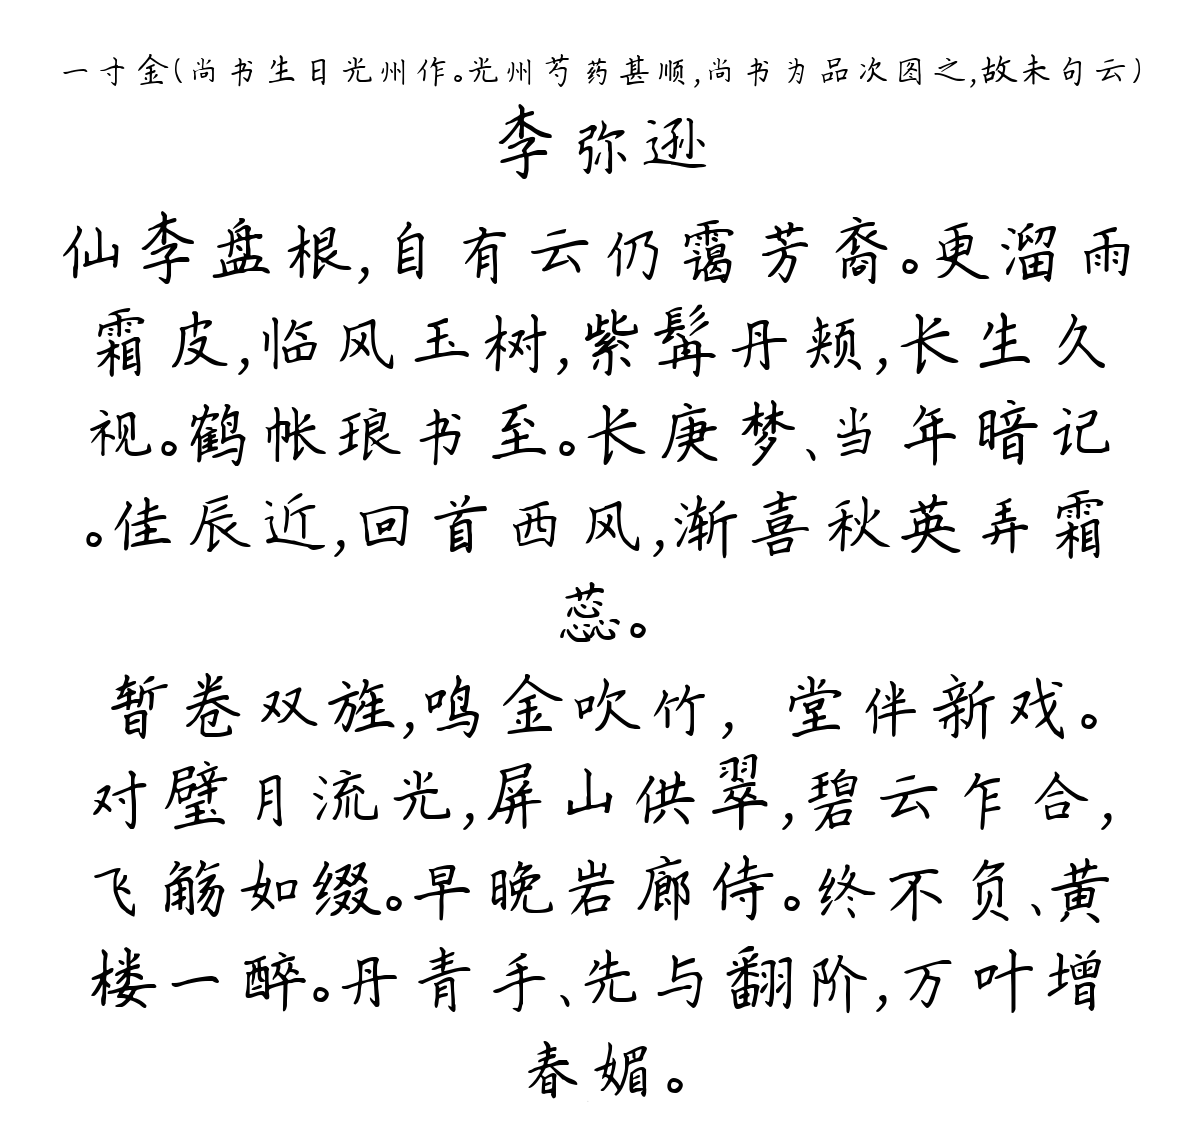 一寸金(尚书生日光州作。光州芍药甚顺,尚书为品次图之,故未句云)
李弥逊
仙李盘根,自有云仍霭芳裔。更溜雨
霜皮,临风玉树,紫髯丹颊,长生久
视。鹤帐琅书至。长庚梦、当年暗记
。佳辰近,回首西风,渐喜秋英弄霜
蕊。
暂卷双旌,鸣金吹竹,堂伴新戏。
对璧月流光,屏山供翠,碧云乍合,
飞觞如缀。早晚岩廊侍。终不负、黄
楼一醉。丹青手、先与翻阶,万叶增
春媚。